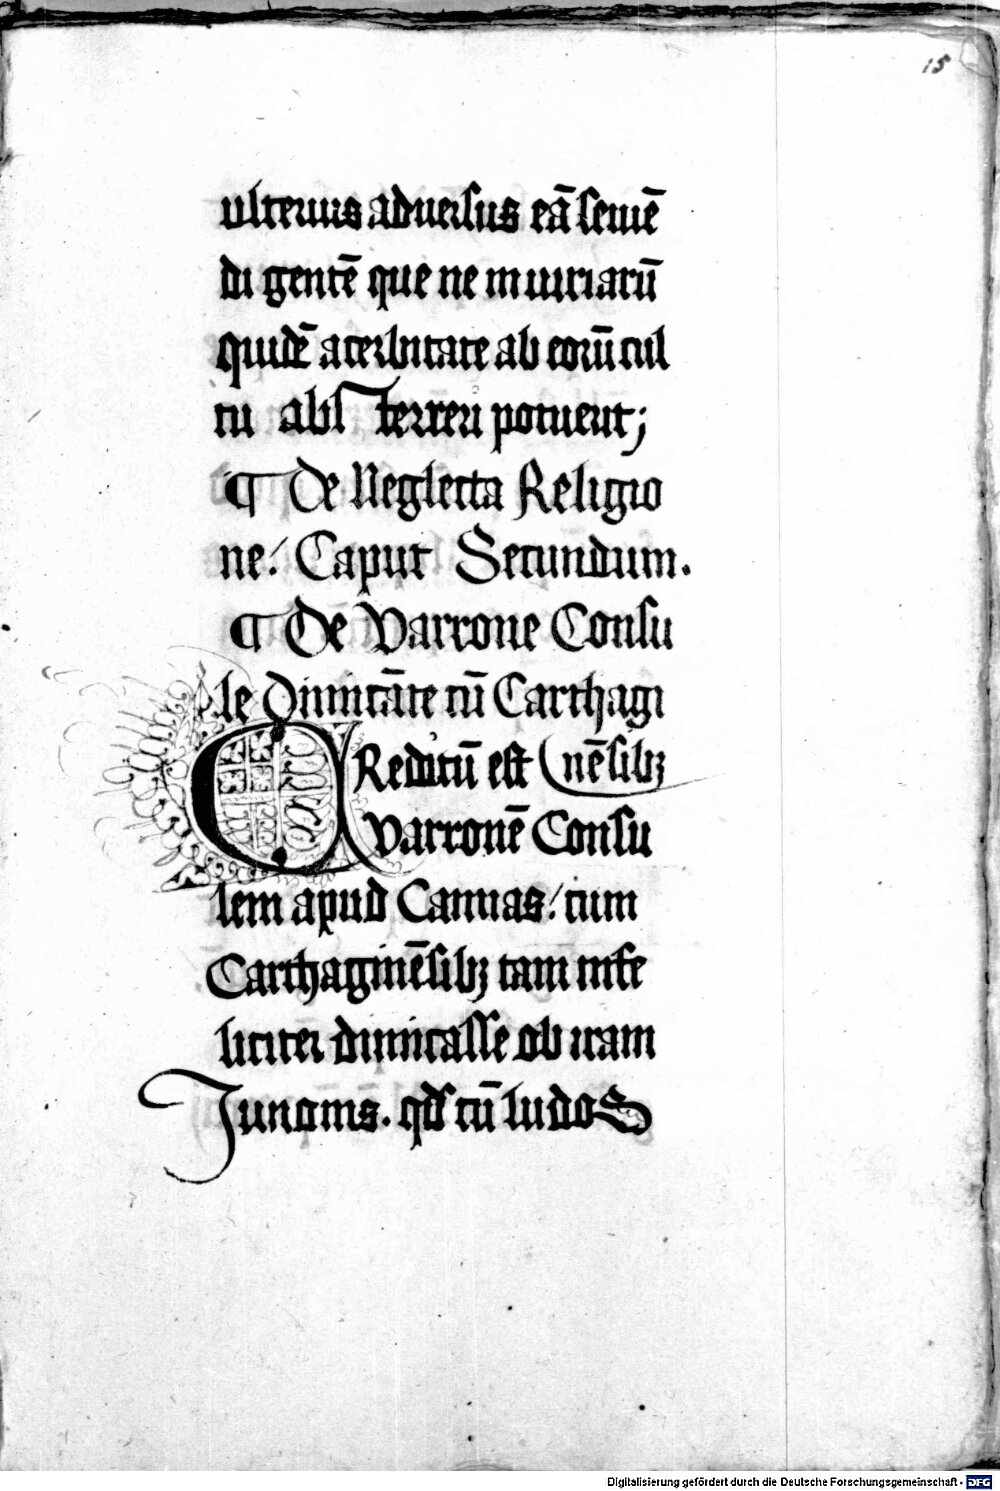 15
ulterius aduersus eā seuiē
di gentē que ne in iuriarū
quidē acerbitate ab eorū cul
tu absterreri potuerit;
¶ De Neglecta Religio
ne / Caput Secundum.
¶ De Varrone Consu
le Dimicāte cū Carthagi
CReditū est nēsibꝫ
Varronē Consu
lem apud Cannas / cum
Carthaginēsibꝫ tam infe
liciter dimicasse ob iram
Junonis. qd cū ludos
Digitalisierung gefördert durch die Deutsche Forschungsgemeinschaft - DFG